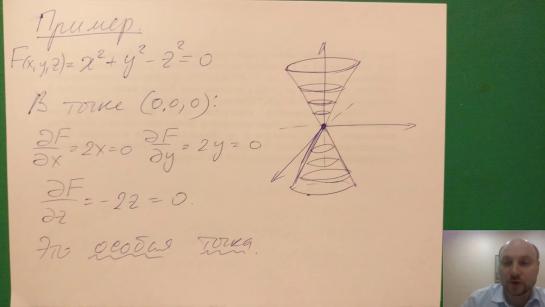 Пример.
F(x,y,z)= x² + y² - z² = 0
В точке (0,0,0):
∂F/∂x = 2x = 0 ∂F/∂y = 2y = 0
∂F/∂z = -2z = 0.
Это особая точка.